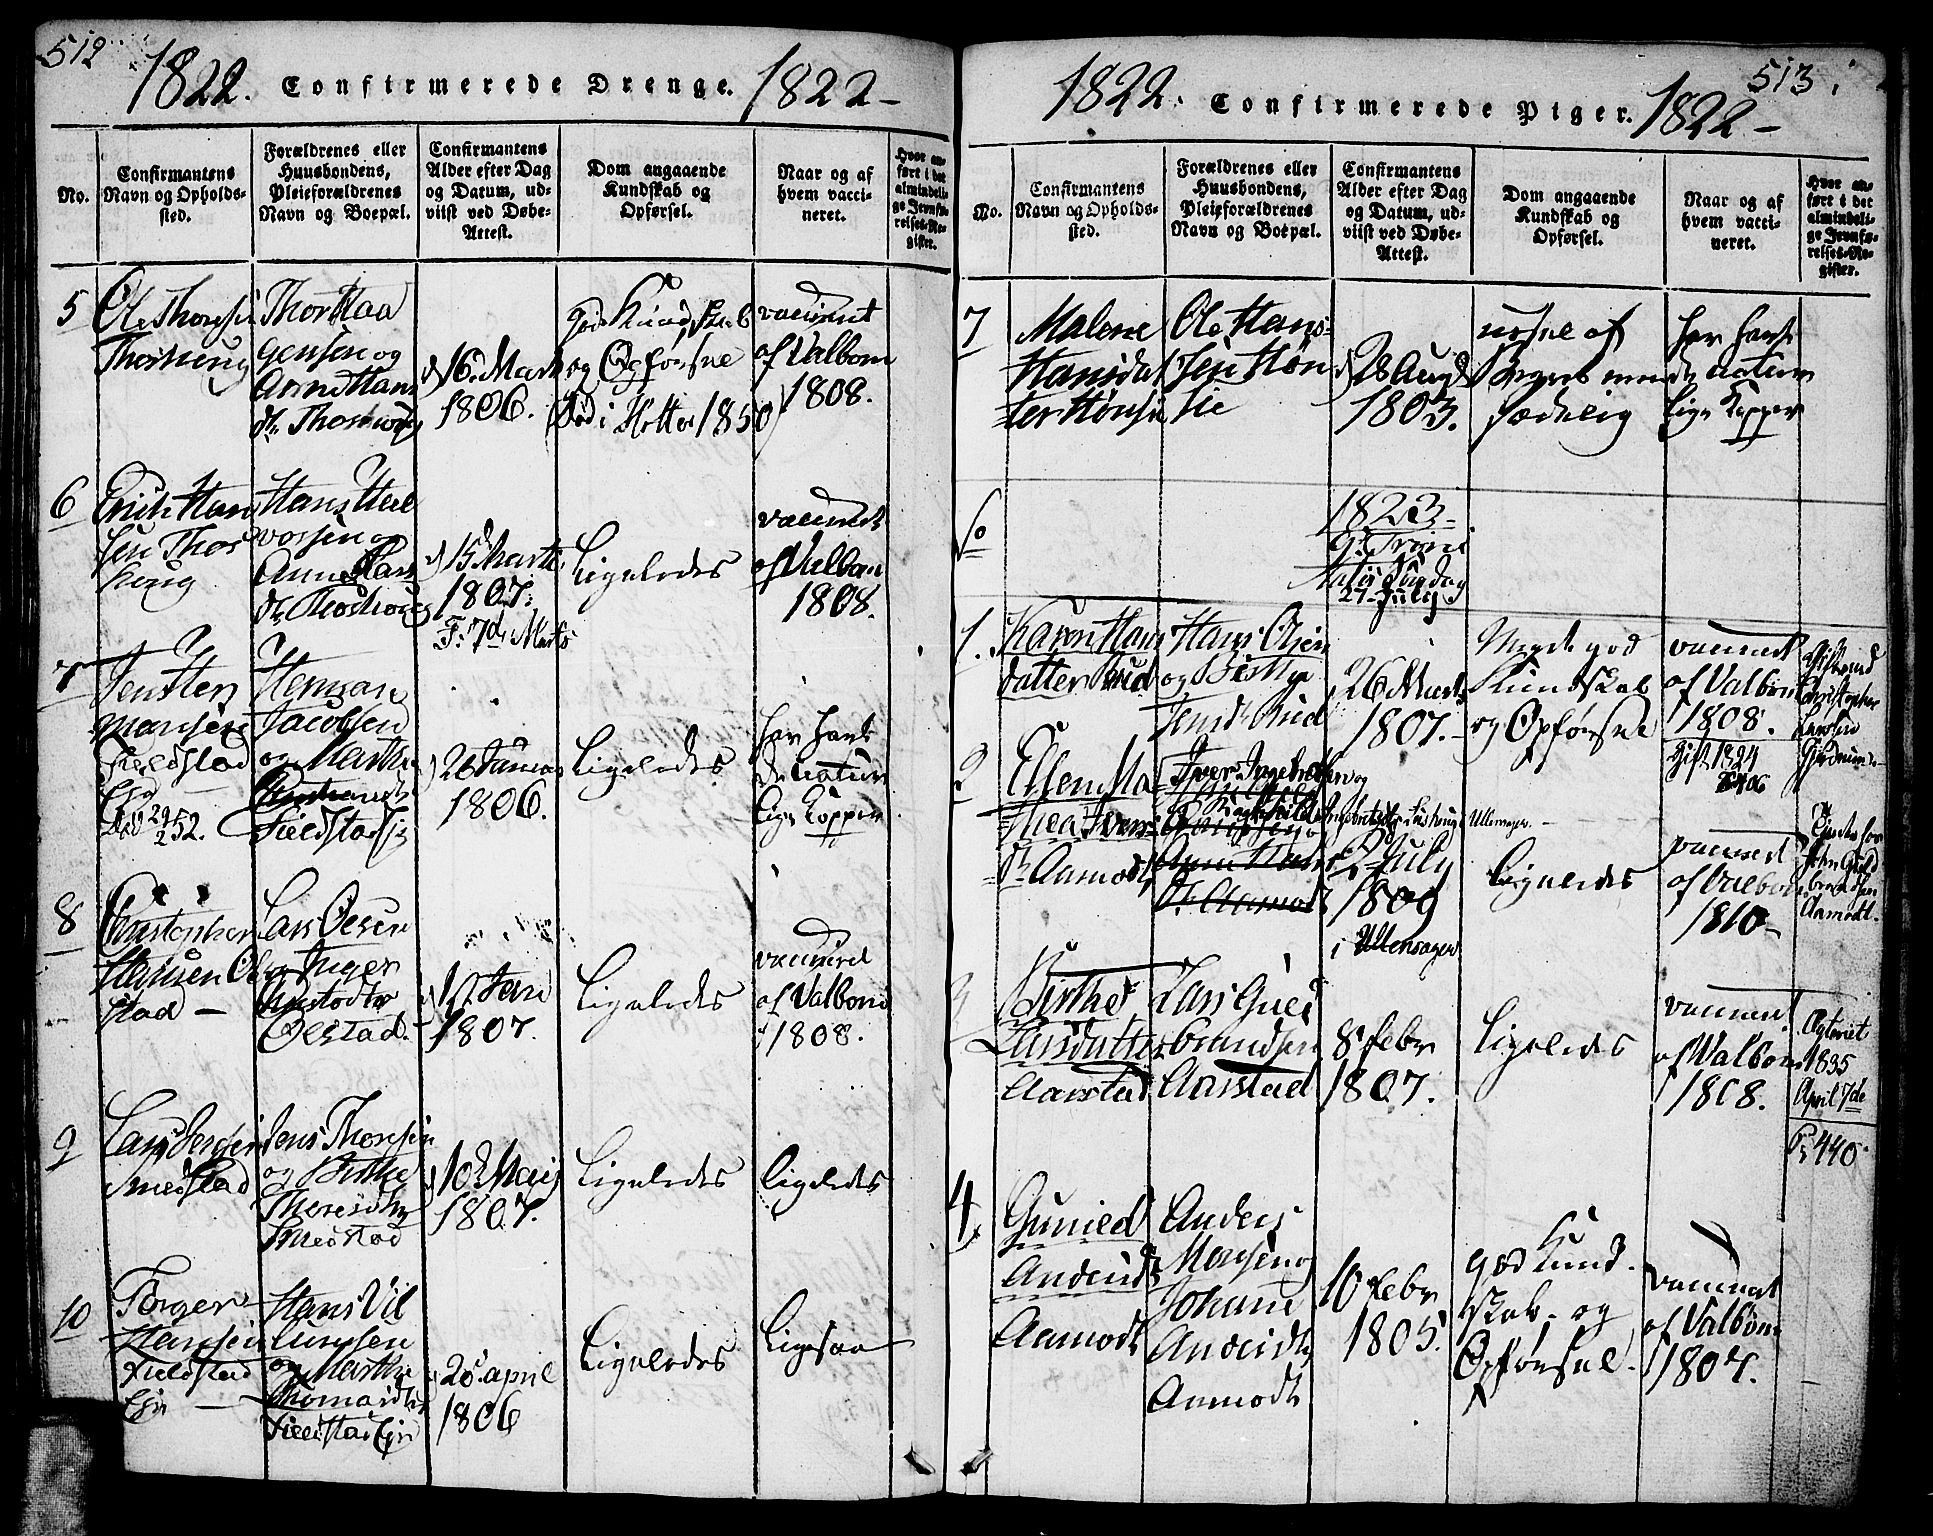 512
1822. Confirmerede Drenge. 1822-
No.
Confirmantens
Navn og Opholds-
sted.
Forældrenes eller
Huusbondens,
Pleieforældrenes
Navn og Boepæl.
Confirmantens
Alder efter Dag
og Datum, ud-
viist ved Døbe-
Attest.
Dom angaaende
Kundskab og
Opførsel.
Naar og af
hvem vacci-
neret.
Hvor an-
ført i det
almindeli-
ge Jevnfø-
relses-Re-
gister.
5
Ole Thorsen
Thorshoug
Thor Haa
gensen og
Anne Hans
dr. Thorshoug
16. Marts
1806.
god Kundskab
og Opførsel
Død i Hotter 1850
vaccineret
af Valbom
1808.
6
Erich Han
sen Thors
houg
Hans Hal
vorsen og
Anne Lars
dr. Thorshoug
15 Martz
1807.
F: 7de Marts
Ligeledes
vaccineret
af Valbom
1808.
7
Jens Her
mansen
Fieldstad
Eje
Død 29/2 52.
Herman
Jacobsen
og Marthe
Fieldstadeje
26 Januar
1806.
Ligeledes
har havt
de natur
lige Kopper
8
Christopher
Larsen Ol
stad -
Lars Olsen
og Inger
Christodtr
Oelstad.
17 Jan
1807.
Ligeledes
vaccineret
af Valbom
1808.
9
Lars Jensen
Smedstad
Jens Thoresen
og Birthe
Thoresdtr
Smedstad
10 Maij
1807.
Ligeledes
ligeledes
10
Torger
Hansen
Fieldstad
Eje -
Hans Vil
lumsen
og Marthe
Thomasdtr
Fieldstad Eje
20. april
1806
Ligeledes
Ligesaa
513
1822. Confirmerede Piger. 1822-
No.
Confirmantens
Navn og Opholds-
sted.
Forældrenes eller
Huusbondens,
Pleieforældrenes
Navn og Boepæl.
Confirmantens
Alder efter Dag
og Datum, ud-
viist ved Døbe-
Attest.
Dom angaaende
Kundskab og
Opførsel.
Naar og af
hvem vacci-
neret.
Hvor an-
ført i det
almindeli-
ge Jevnfø-
relses-Re-
gister.
7
Malene
Hansdat
ter Hønsie
Ole Hans
sen Høn
sie
28 Augs
1803.
sædelig
har havt
de natur
lige Kopper
1823-
9de Trini
tatis Søndag
27 July
1.
Karen Hans
datter Ruud
Hans Olsen
og Birthe
Jensdr. Ruud
26 Marts
1807.
Meget god
Kundskab
og Opførsel
vaccineret
af Valbom
1808.
Gift 1824
Gift med
Christopher
Larsen
Gjerdrum
2
Ellen Ma
thea Ivers
dr. Aamodt
Iver Ingebretsen og
Ragnhild Ingebretsdr. Ullensager.
2 July
1809
i Ullensager
Ligeledes
vaccineret
af Valbom
1810-
Tjente for
John Guld
brandsen
Aamodt.
3
Birthe
Larsdatter
Aarstad
Lars Guld
brandsen
Aarstad
8 Febr
1807.
Ligeledes
vaccineret
af Valbom
1808.
1835
April 7de
440
4
Gunild
Andersdr
Aamodt
Anders
Monsen og
Johanne
Andersdtr
Aamodt
10 Febr
1805.
god Kund-
skab og
Opførsel.
vaccineret
af Valbom
1807.